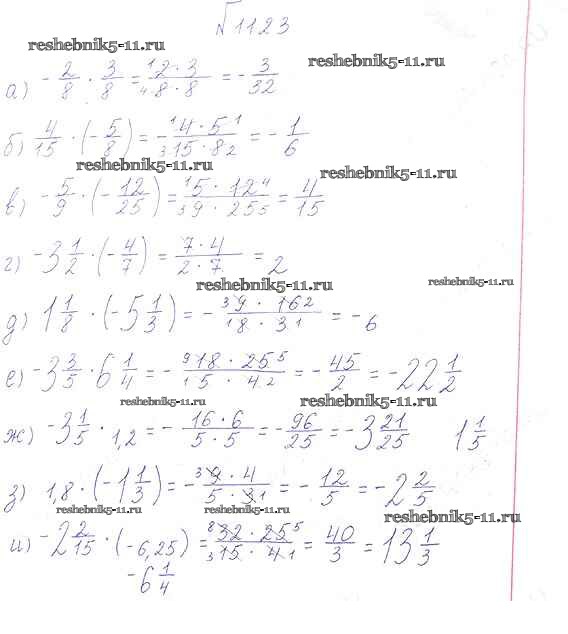 √1123
reshebnik5-11.ru
reshebnik5-11.ru
а) -2/8 · 3/8 = 12·3/48·8 = -3/32
б) 4/15 · (-5/8) = -14·51/315·82 = -1/6
reshebnik5-11.ru
reshebnik5-11.ru
в) -5/9 · (-12/25) = 15·124/39·255 = 4/15
г) -3 1/2 · (-4/7) = 7·4/2·7 = 2
reshebnik5-11.ru
reshebnik5-11.ru
д) 1 1/8 · (-5 1/3) = -39·162/18·31 = -6
е) -3 3/5 · 6 1/4 = -918·255/15·42 = -45/2 = -22 1/2
reshebnik5-11.ru
reshebnik5-11.ru
ж) -3 1/5 · 1,2 = -16·6/5·5 = -96/25 = -3 21/25 1 1/5
з) 1,8 · (-1 1/3) = -39·4/5·31 = -12/5 = -2 2/5
reshebnik5-11.ru
reshebnik5-11.ru
reshebnik5-11.ru
и) -2 2/15 · (-6,25) = 832·255/315·41 = 40/3 = 13 1/3
-6 1/4